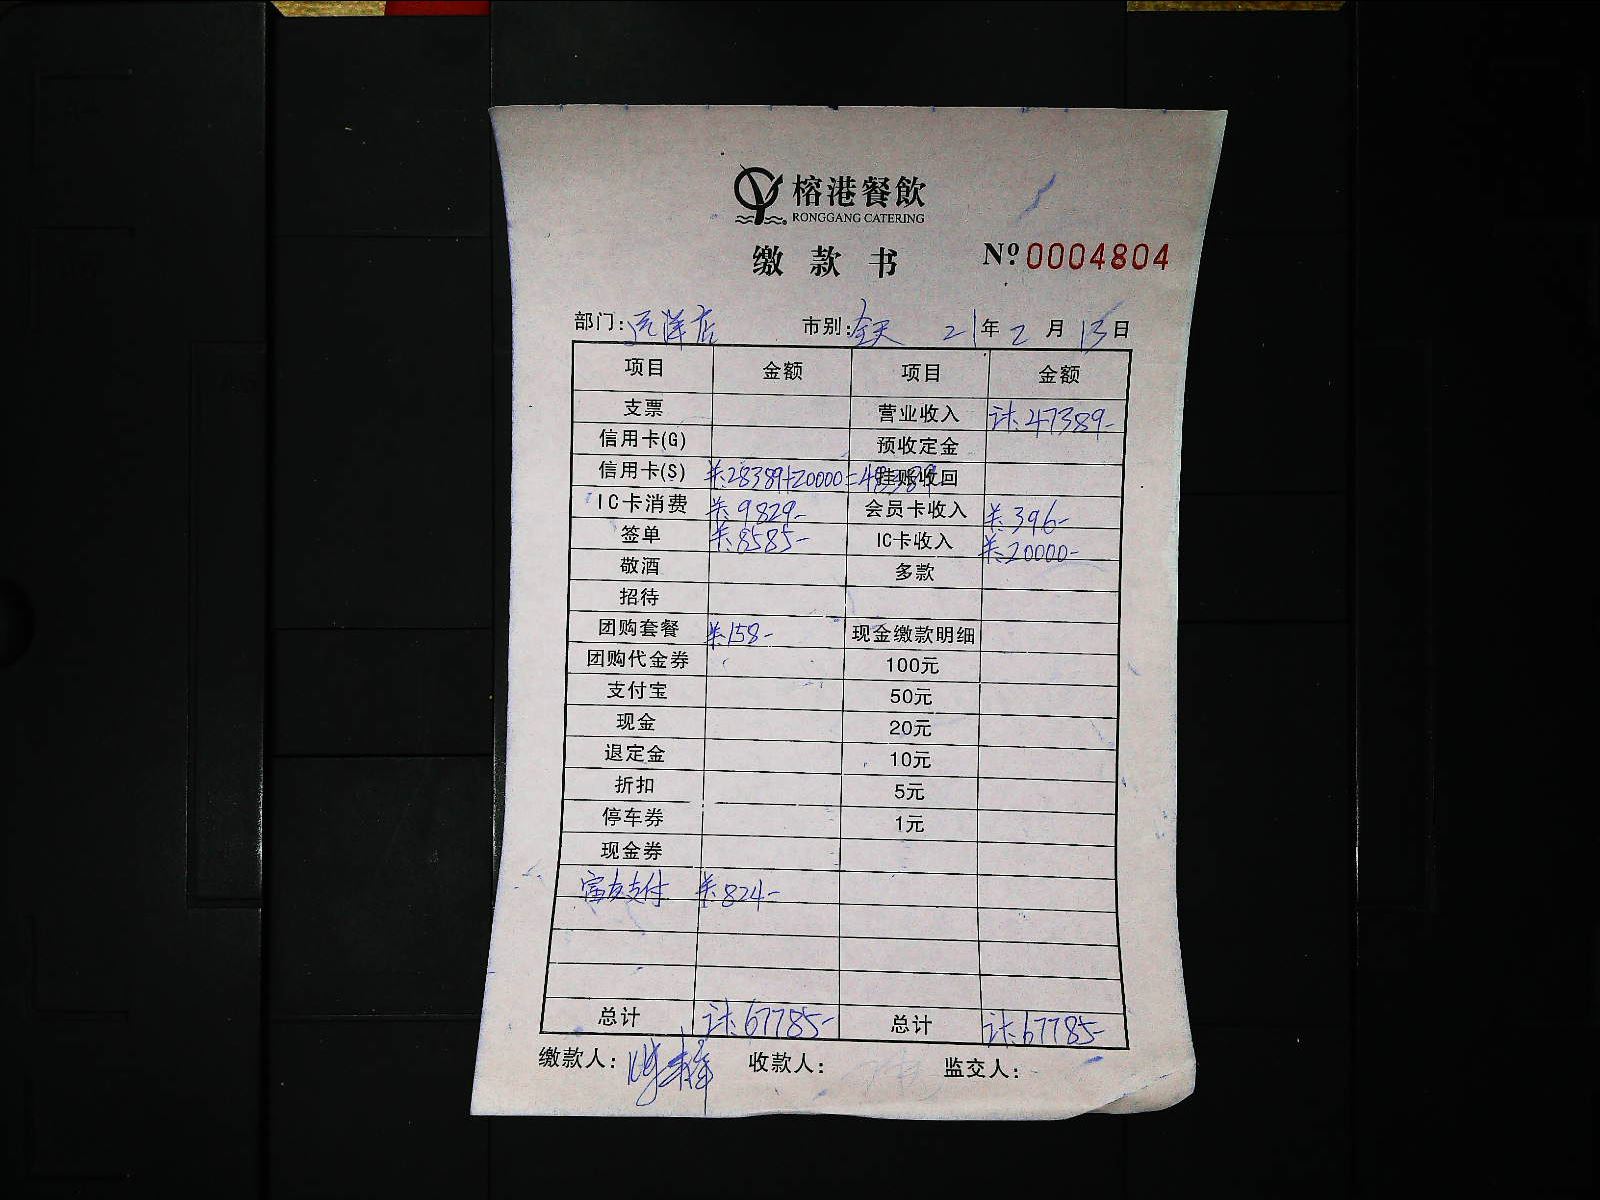 榕港餐飲
RONGGANG CATERING
缴款书 №0004804
部门:远洋店 市别:全天 21年2月13日
项目 金额 项目 金额
支票 营业收入 计:47389-
信用卡(G) 预收定金
信用卡(S) 关:28389+20000=48389 挂账收回
IC卡消费 关:9829- 会员卡收入 关:396-
签单 关:8585- IC卡收入 关:20000-
敬酒 多款
招待
团购套餐 关:158- 现金缴款明细
团购代金券 100元
支付宝 50元
现金 20元
退定金 10元
折扣 5元
停车券 1元
现金券
富友支付 关:824-
总计 计:67785- 总计 计:67785-
缴款人: 收款人: 监交人: